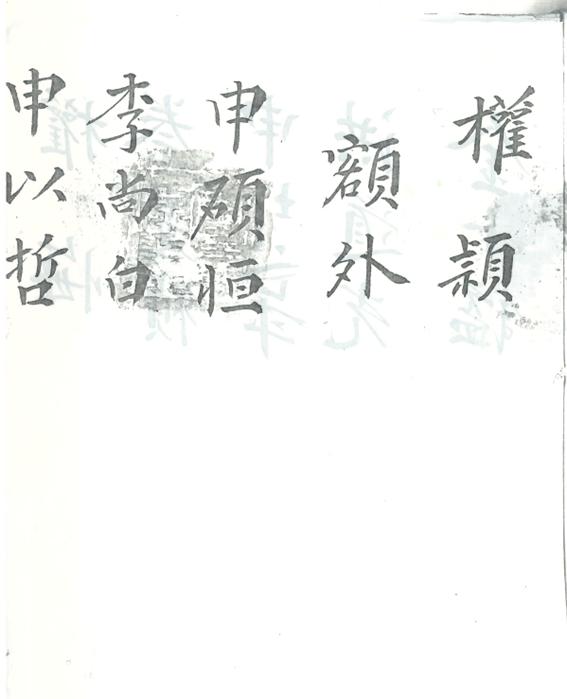 權頴
額外
申碩恒
李尚白
申以哲